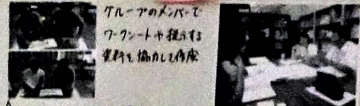 グループのメンバーで
ワークシートや提示する
資料を協力して作成